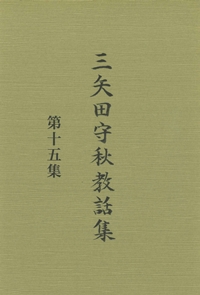 三矢田守秋教話集
第十五集